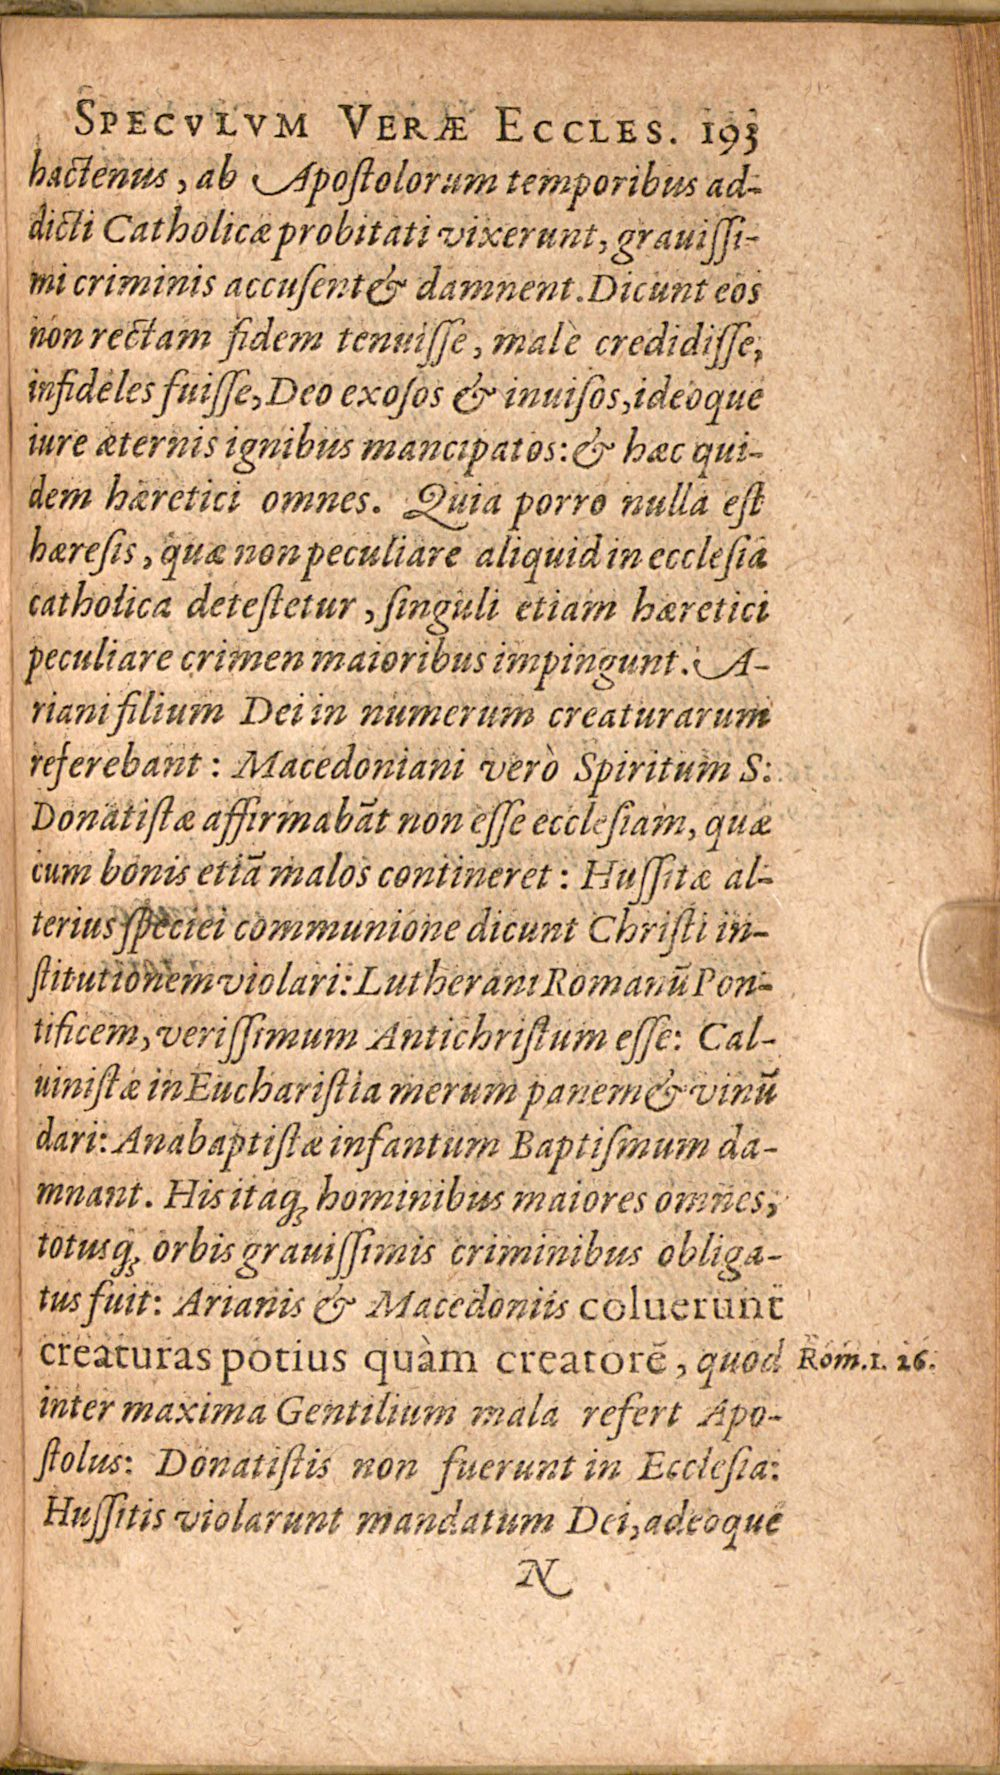 SPECVLVM VERÆ ECCLES. 193
hactenus, ab Apostolorum temporibus ad-
dicti Catholicæ probitati vixerunt, grauissi-
mi criminis accusent & damnent. Dicunt eos
non rectam fidem tenuisse, male credidisse,
infideles fuisse, Deo exosos & inuisos, ideoque
iure æternis ignibus mancipatos: & hæc qui-
dem hæretici omnes. Quia porro nulla est
hæresis, quæ non peculiare aliquid in ecclesia
catholica detestetur, singuli etiam hæretici
peculiare crimen maioribus impingunt. A-
riani filium Dei in numerum creaturarum
referebant: Macedoniani verò Spiritum S:
Donatistæ affirmabāt non esse ecclesiam, quæ
cum bonis etiā malos contineret: Hussitæ al-
terius speciei communione dicunt Christi in-
stitutionem violari: Lutherani Romanū Pon-
tificem, verissimum Antichristum esse: Cal-
uinistæ in Eucharistia merum panem & vinū
dari: Anabaptistæ infantum Baptismum da-
mnant. His itaq; hominibus maiores omnes,
totusq; orbis grauissimis criminibus obliga-
tus fuit: Arianis & Macedoniis coluerunt
creaturas potius quàm creatorē, quod
Rom.1. 26.
inter maxima Gentilium mala refert Apo-
stolus: Donatistis non fuerunt in Ecclesia:
Hussitis violarunt mandatum Dei, adeoque
N